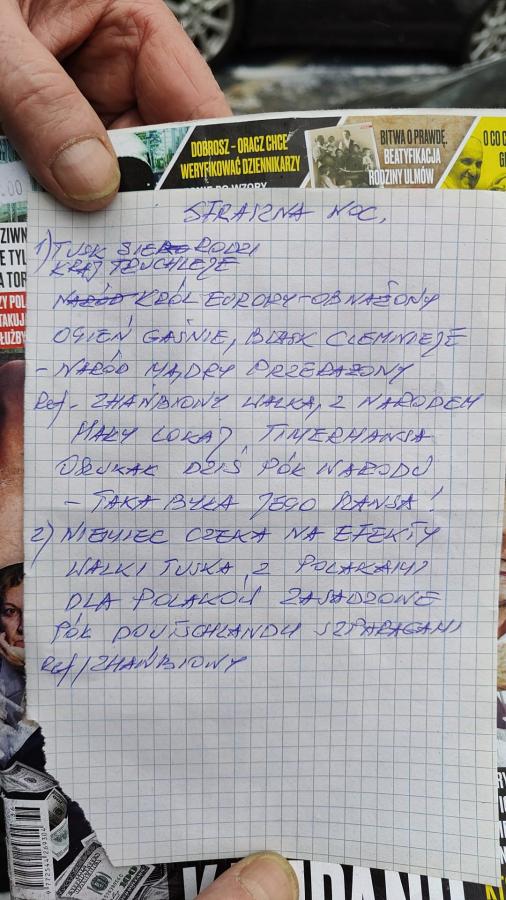 DOBROSZ - ORACZ CHCE
WERYFIKOWAĆ DZIENNIKARZY
BITWA O PRAWDĘ.
BEATYFIKACJA
RODZINY ULMÓW
O CO
STRASZNA NOC,
1) TUSK SIĘ RODZI
KRAJ TRUCHLEJE
NARÓD KRÓL EUROPY - OBNAŻONY
OGIEŃ GAŚNIE, BLASK CIEMNIEJE
- NARÓD MĄDRY PRZERAŻONY
Ref - ZHAŃBIONY WALKĄ Z NARODEM
MAŁY LOKAJ TIMERMANSA
OSZUKAŁ DZIŚ PÓŁ NARODU
- TAKA BYŁA JEGO RANSA!
2) NIEMIEC CZEKA NA EFEKTY
WALKI TUSKA Z POLAKAMI
DLA POLAKÓW ZASADZONE
PÓŁ DOUTSCHLANDU SZPARAGAMI
Ref / ZHAŃBIONY
9 772544 269304
100